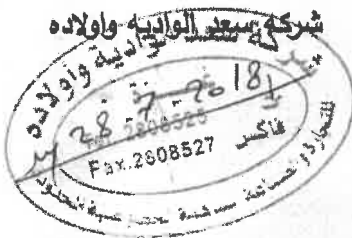 شركة سعد الوادية واولاده
وادية وأولاده
28-7-2018
Tel. 2808525
فاكس Fax.2808527
للتجارة والصناعة مساهمة خصوصية المحدودة